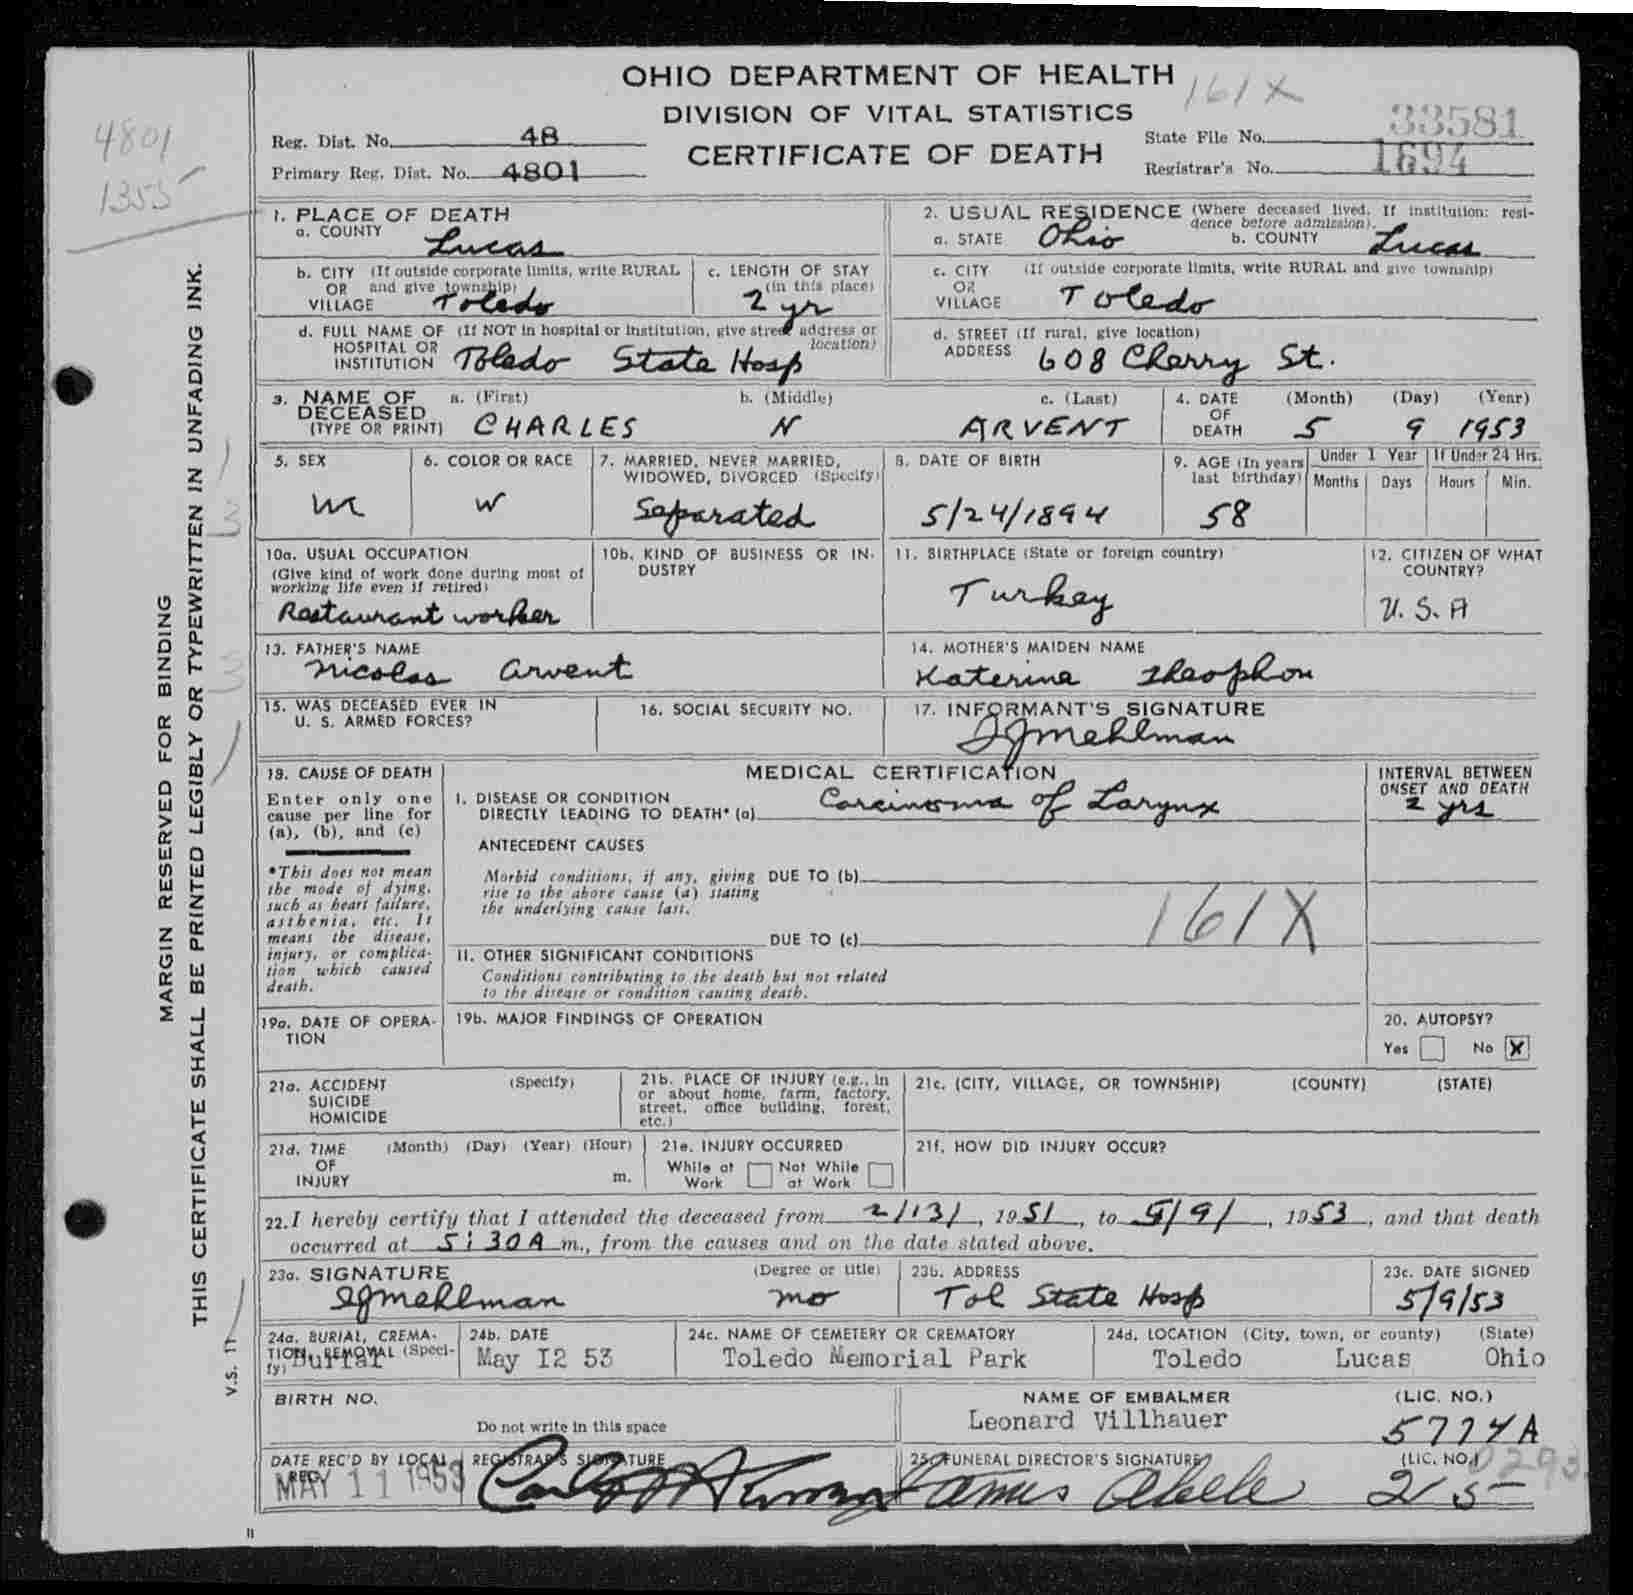 OHIO DEPARTMENT OF HEALTH
DIVISION OF VITAL STATISTICS
CERTIFICATE OF DEATH
161X
4801
1355
Reg. Dist. No. 48
Primary Reg. Dist. No. 4801
State File No. 33581
Registrar's No. 1694
MARGIN RESERVED FOR BINDING
THIS CERTIFICATE SHALL BE PRINTED LEGIBLY OR TYPEWRITTEN IN UNFADING INK.
V.S. 11
1. PLACE OF DEATH
a. COUNTY Lucas
b. CITY (If outside corporate limits, write RURAL
OR and give township)
VILLAGE Toledo
c. LENGTH OF STAY
(in this place)
2 yr
d. FULL NAME OF (If NOT in hospital or institution, give street address or
HOSPITAL OR location)
INSTITUTION Toledo State Hosp
2. USUAL RESIDENCE (Where deceased lived. If institution: resi-
dence before admission).
a. STATE Ohio b. COUNTY Lucas
c. CITY (If outside corporate limits, write RURAL and give township)
OR
VILLAGE Toledo
d. STREET (If rural, give location)
ADDRESS 608 Cherry St.
3. NAME OF DECEASED (TYPE OR PRINT)
a. (First) b. (Middle) c. (Last)
CHARLES N ARVENT
4. DATE OF DEATH (Month) (Day) (Year)
5 9 1953
5. SEX
M
6. COLOR OR RACE
W
7. MARRIED, NEVER MARRIED,
WIDOWED, DIVORCED (Specify)
Separated
8. DATE OF BIRTH
5/24/1894
9. AGE (In years
last birthday)
58
Under 1 Year
Months Days
If Under 24 Hrs.
Hours Min.
10a. USUAL OCCUPATION
(Give kind of work done during most of
working life even if retired)
Restaurant worker
10b. KIND OF BUSINESS OR IN-
DUSTRY
11. BIRTHPLACE (State or foreign country)
Turkey
12. CITIZEN OF WHAT
COUNTRY?
U.S.A
13. FATHER'S NAME
Nicolas Arvent
14. MOTHER'S MAIDEN NAME
Katerina Theophou
15. WAS DECEASED EVER IN
U. S. ARMED FORCES?
16. SOCIAL SECURITY NO.
17. INFORMANT'S SIGNATURE
IJMehlman
18. CAUSE OF DEATH
Enter only one
cause per line for
(a), (b), and (c)
*This does not mean
the mode of dying,
such as heart failure,
asthenia, etc. It
means the disease,
injury, or complica-
tion which caused
death.
MEDICAL CERTIFICATION
I. DISEASE OR CONDITION
DIRECTLY LEADING TO DEATH* (a) Carcinoma of Larynx
INTERVAL BETWEEN
ONSET AND DEATH
2 yrs
ANTECEDENT CAUSES
Morbid conditions, if any, giving
rise to the above cause (a) stating
the underlying cause last.
DUE TO (b)
DUE TO (c)
161X
II. OTHER SIGNIFICANT CONDITIONS
Conditions contributing to the death but not related
to the disease or condition causing death.
19a. DATE OF OPERA-
TION
19b. MAJOR FINDINGS OF OPERATION
20. AUTOPSY?
Yes No X
21a. ACCIDENT (Specify)
SUICIDE
HOMICIDE
21b. PLACE OF INJURY (e.g., in
or about home, farm, factory,
street, office building, forest,
etc.)
21c. (CITY, VILLAGE, OR TOWNSHIP) (COUNTY) (STATE)
21d. TIME (Month) (Day) (Year) (Hour)
OF
INJURY m.
21e. INJURY OCCURRED
While at Work Not While at Work
21f. HOW DID INJURY OCCUR?
22. I hereby certify that I attended the deceased from 2/13/, 1951, to 5/9/, 1953, and that death
occurred at 5:30A m., from the causes and on the date stated above.
23a. SIGNATURE (Degree or title)
IJMehlman MD
23b. ADDRESS
Tol State Hosp
23c. DATE SIGNED
5/9/53
24a. BURIAL, CREMA-
TION, REMOVAL (Speci-
fy) Burial
24b. DATE
May I2 53
24c. NAME OF CEMETERY OR CREMATORY
Toledo Memorial Park
24d. LOCATION (City, town, or county) (State)
Toledo Lucas Ohio
BIRTH NO.
Do not write in this space
NAME OF EMBALMER (LIC. NO.)
Leonard Villhauer 5774A
DATE REC'D BY LOCAL
REG.
MAY 11 1953
REGISTRAR'S SIGNATURE
25. FUNERAL DIRECTOR'S SIGNATURE (LIC. NO.)
James Abele 25